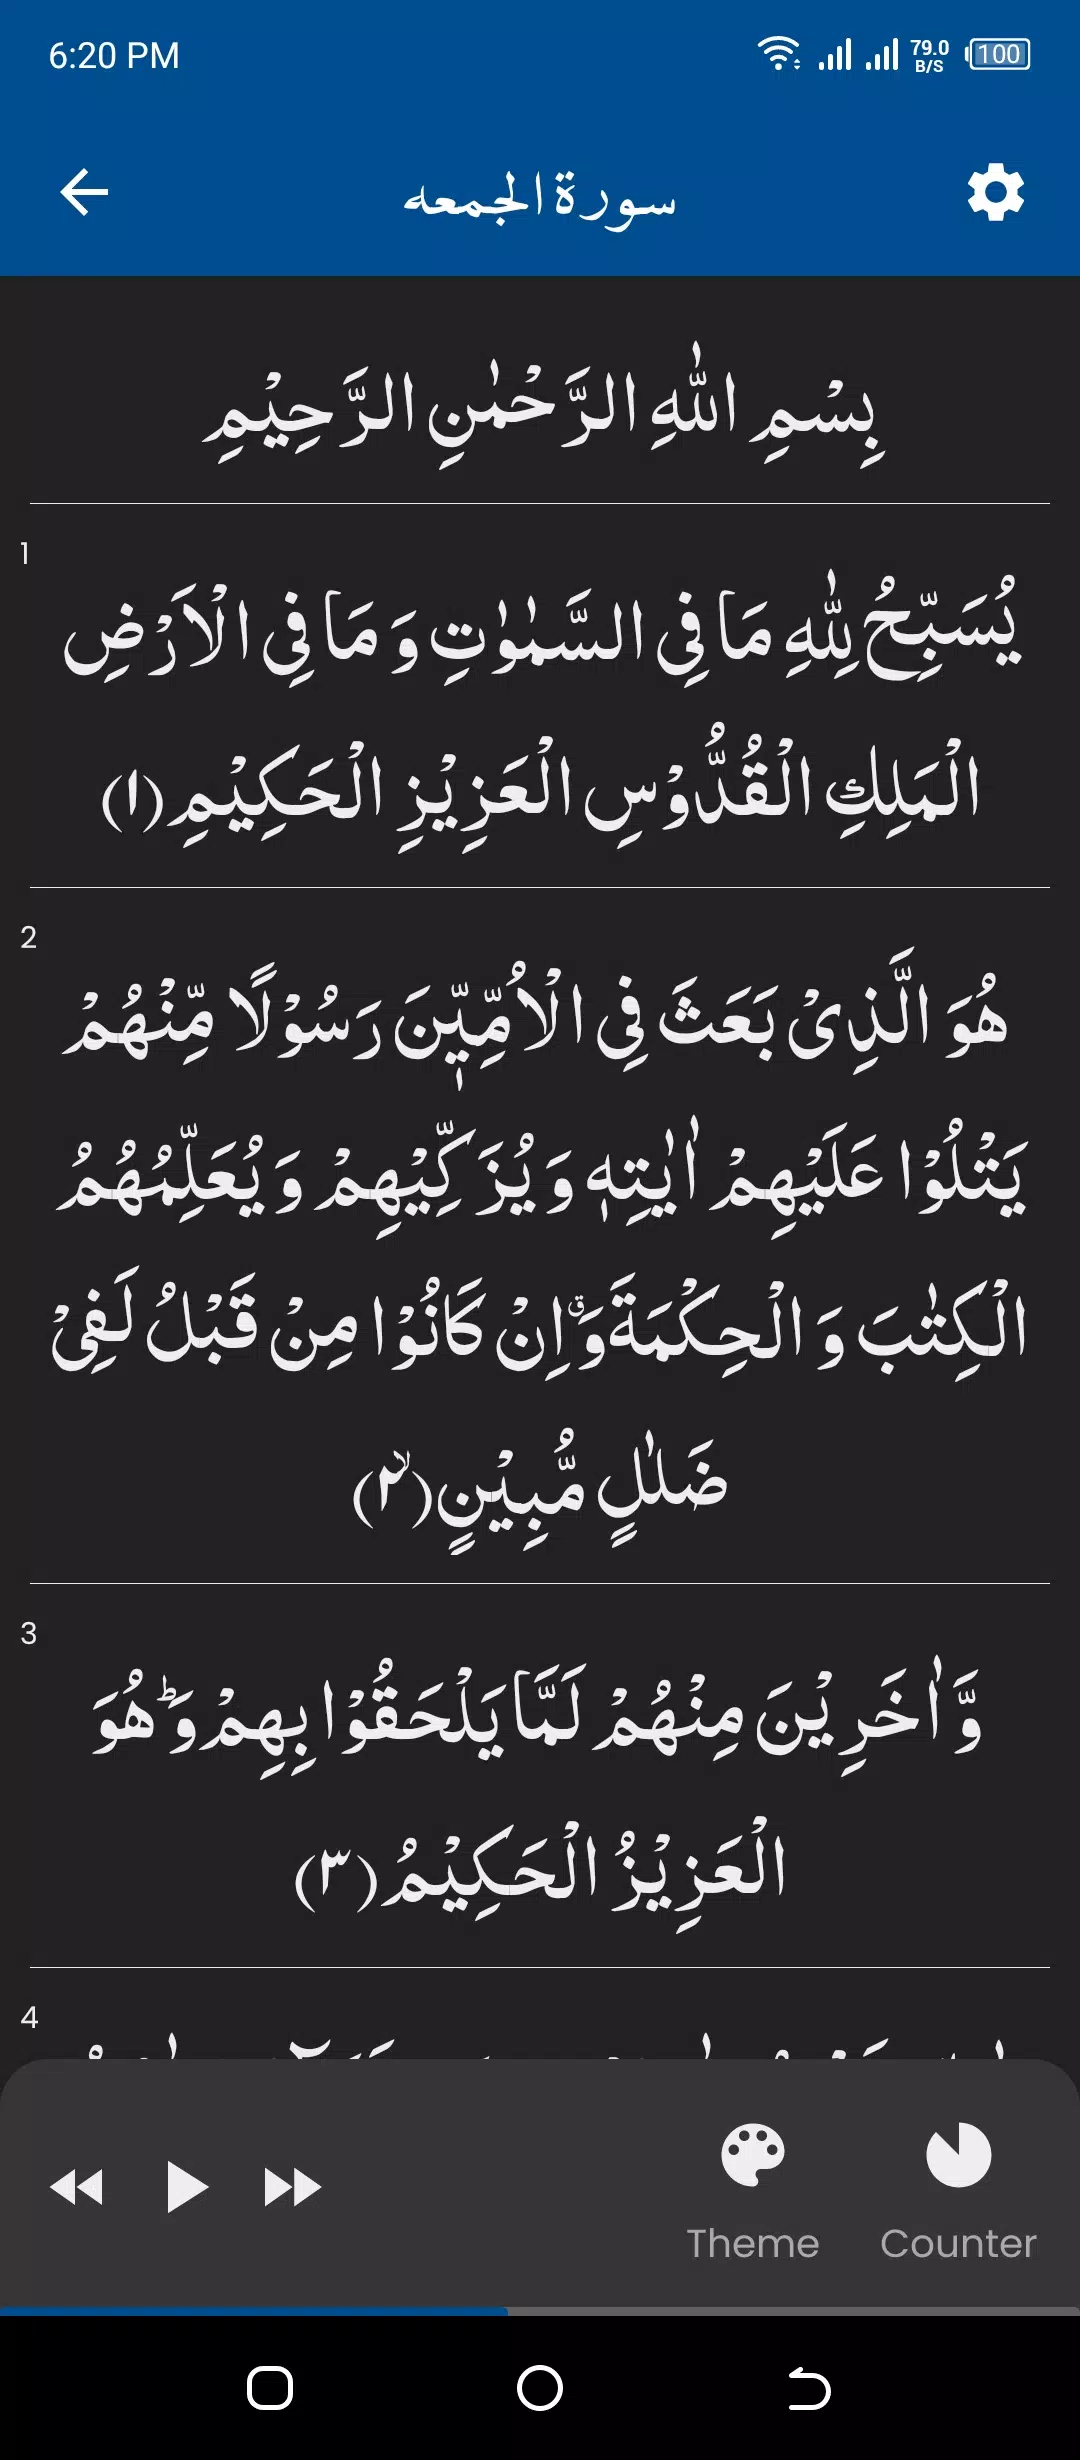 6:20 PM
79.0
B/S
100
سورة الجمعه
بِسْمِ اللّٰهِ الرَّحْمٰنِ الرَّحِیْمِ
1
یُسَبِّحُ لِلّٰهِ مَا فِی السَّمٰوٰتِ وَ مَا فِی الْاَرْضِ
الْمَلِكِ الْقُدُّوْسِ الْعَزِیْزِ الْحَكِیْمِ(۱)
2
هُوَ الَّذِیْ بَعَثَ فِی الْاُمِّیّٖنَ رَسُوْلًا مِّنْهُمْ
یَتْلُوْا عَلَیْهِمْ اٰیٰتِهٖ وَ یُزَكِّیْهِمْ وَ یُعَلِّمُهُمُ
الْكِتٰبَ وَ الْحِكْمَةَۗ وَ اِنْ كَانُوْا مِنْ قَبْلُ لَفِیْ
ضَلٰلٍ مُّبِیْنٍۙ(۲)
3
وَّ اٰخَرِیْنَ مِنْهُمْ لَمَّا یَلْحَقُوْا بِهِمْؕ وَ هُوَ
الْعَزِیْزُ الْحَكِیْمُ(۳)
4
Theme
Counter